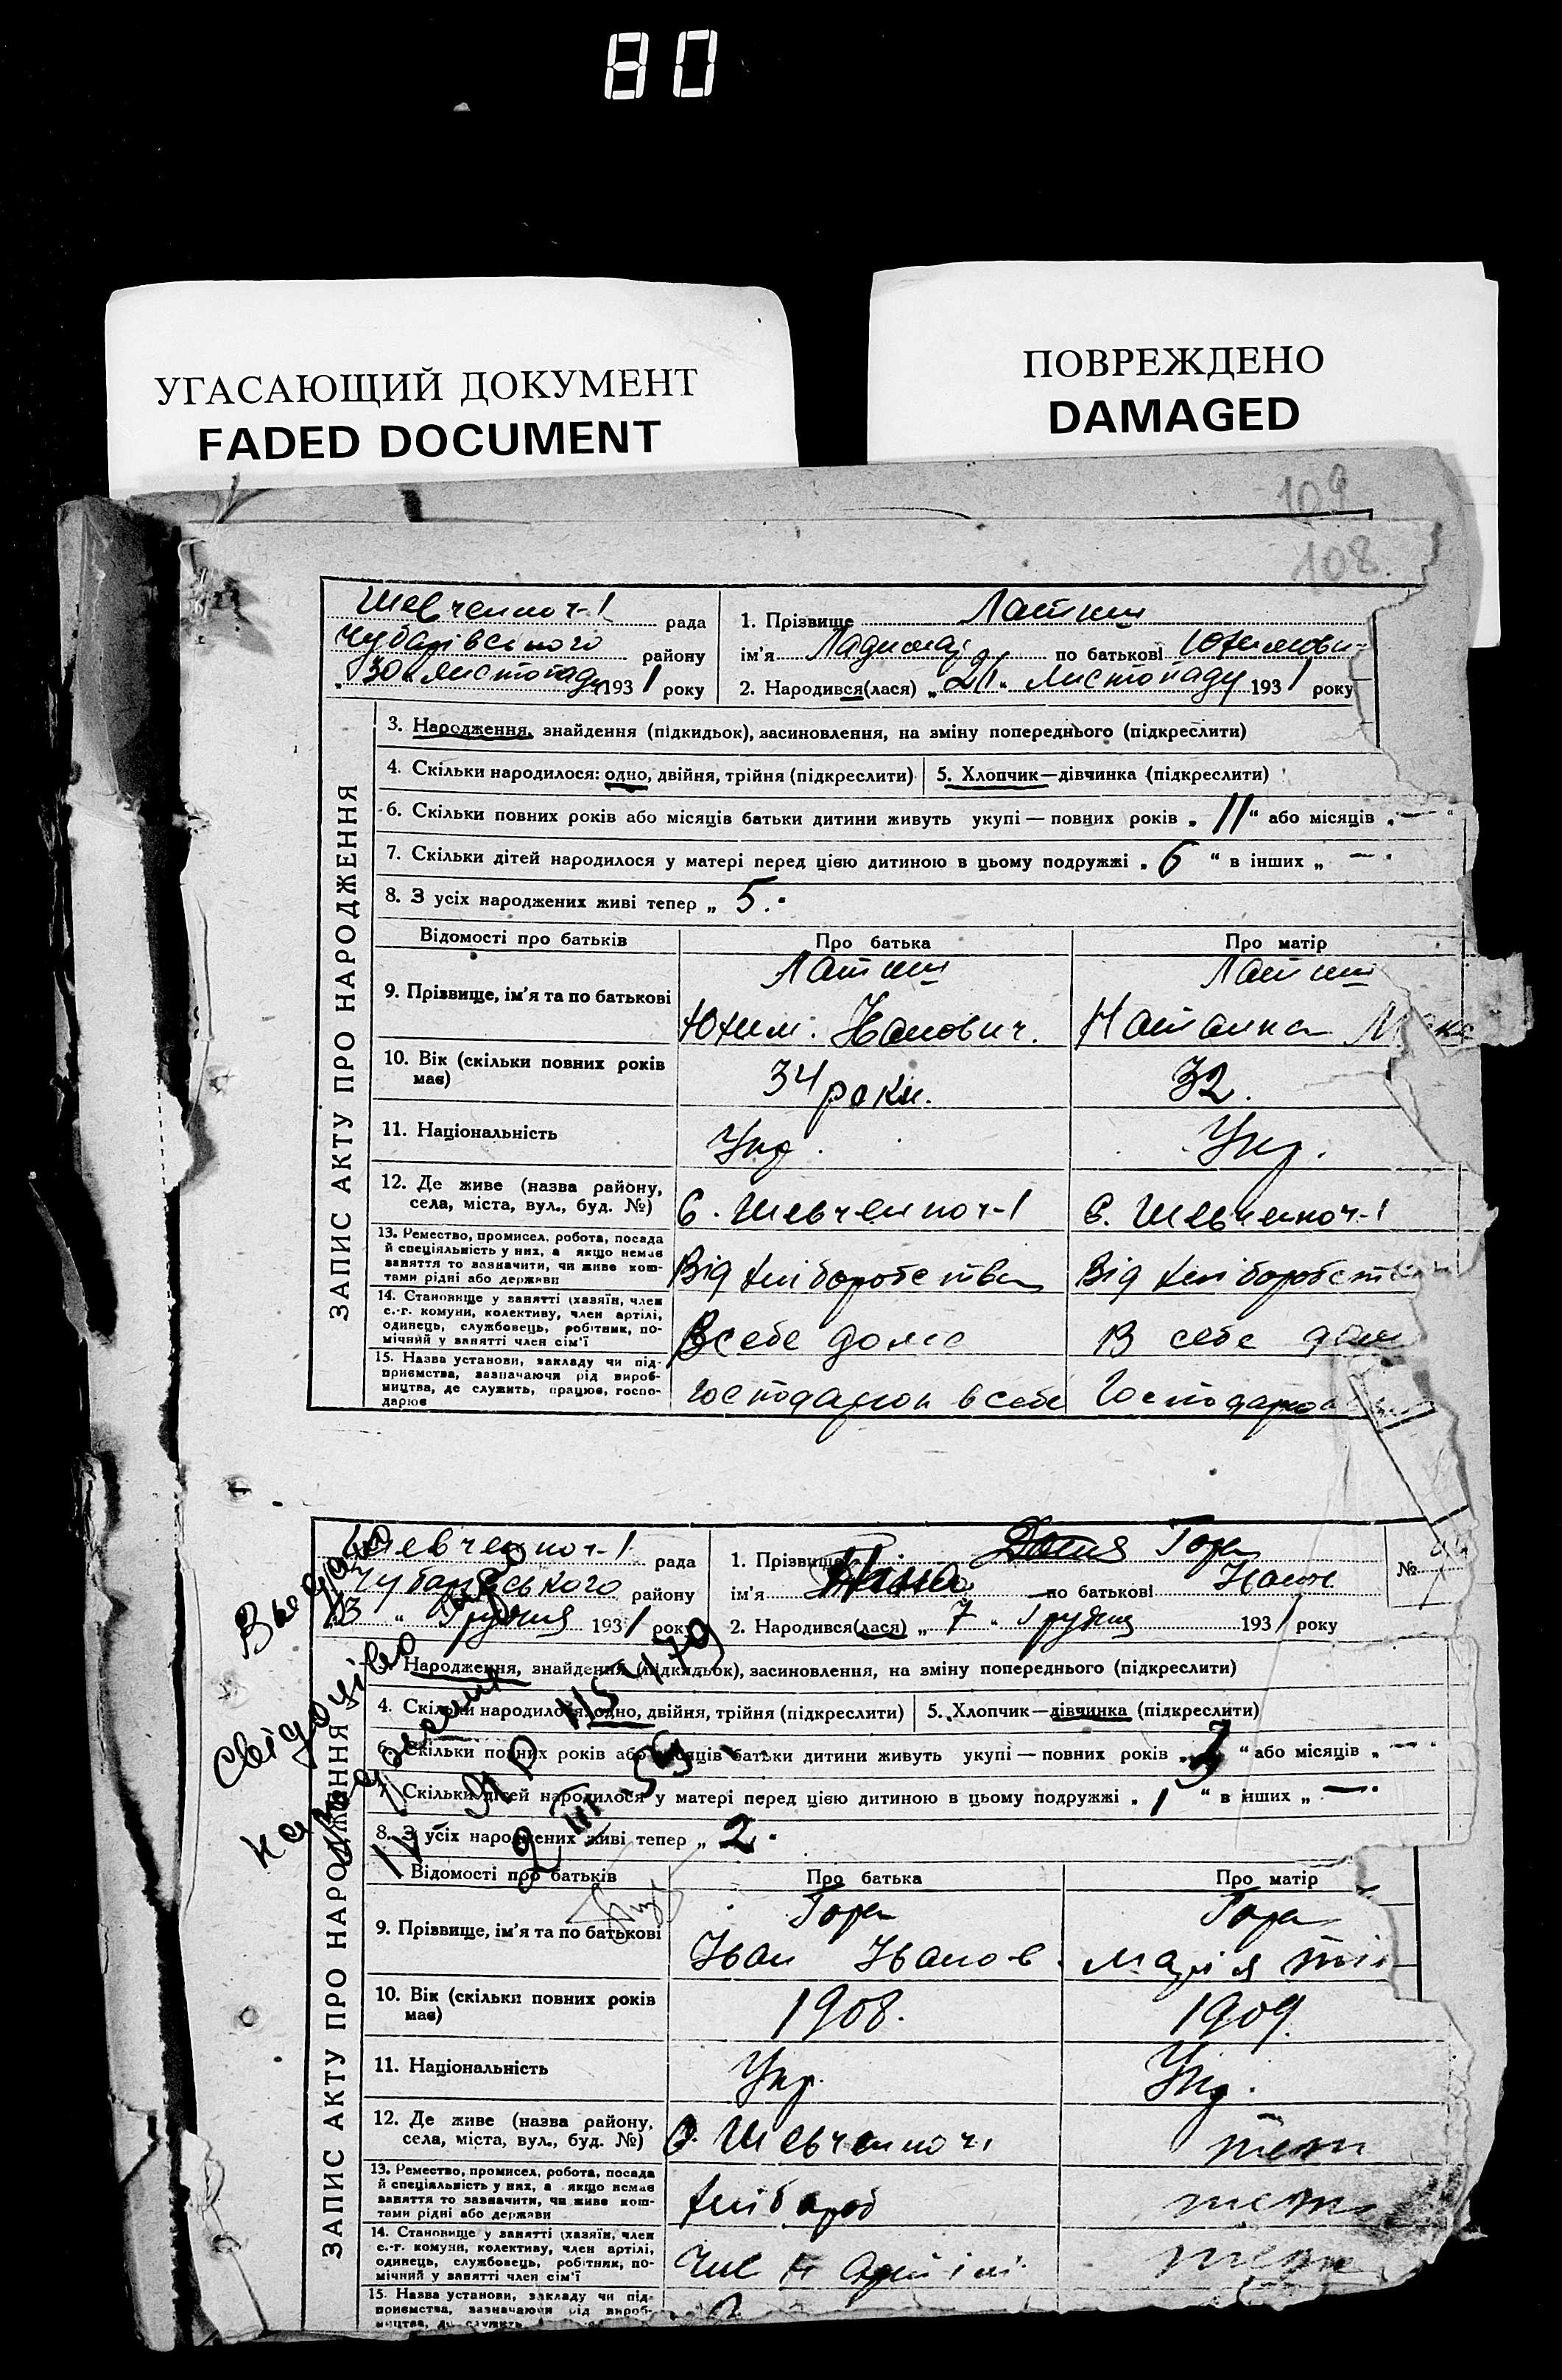 80
УГАСАЮЩИЙ ДОКУМЕНТ
FADED DOCUMENT
ПОВРЕЖДЕНО
DAMAGED
109
108
ЗАПИС АКТУ ПРО НАРОДЖЕННЯ
Шевченког-1 рада
Чубарівського району
"30" листопаду 1931 року
1. Прізвище Латиш
ім'я по батькові Юхимови
2. Народився(лася) „21" Листопаду 1931 року
3. Народження, знайдення (підкидьок), засиновлення, на зміну попереднього (підкреслити)
4. Скільки народилося: одно, двійня, трійня (підкреслити)
5. Хлопчик—дівчинка (підкреслити)
6. Скільки повних років або місяців батьки дитини живуть укупі — повних років „11" або місяців „—"
7. Скільки дітей народилося у матері перед цією дитиною в цьому подружжі „6" в інших „—"
8. З усіх народжених живі тепер „5.
Відомості про батьків Про батька Про матір
9. Прізвище, ім'я та по батькові
Латиш Латиш
Юхим Іванович.
10. Вік (скільки повних років має)
34 роки. 32.
11. Національність Укр. Укр.
12. Де живе (назва району, села, міста, вул., буд. №)
С. Шевченког-1 С. Шевченког-1
13. Ремество, промисел, робота, посада
й спеціяльність у них, а якщо немає
заняття то зазначити, чи живе кош-
тами рідні або держави
Від хліборобства Від хліборобст
14. Становище у занятті (хазяїн, член
с.-г. комуни, колективу, член артілі,
одинець, службовець, робітник, по-
мічний у занятті член сім'ї
В себе дома В себе дом
15. Назва установи, закладу чи під-
приємства, зазначаючи рід вироб-
ництва, де служить, працює, госпо-
дарює
Господарюв в себе Господарюв
ЗАПИС АКТУ ПРО НАРОДЖЕННЯ
Шевченког-1 рада
Чубарівського району
13 " Грудня 1931 року
1. Прізвище Гора
ім'я по батькові Іван
№
2. Народився(лася) „7" Грудня 1931 року
Народження, знайдення (підкидьок), засиновлення, на зміну попереднього (підкреслити)
4. Скільки народилося: одно, двійня, трійня (підкреслити)
5. Хлопчик—дівчинка (підкреслити)
6. Скільки повних років або місяців батьки дитини живуть укупі — повних років „3" або місяців „—"
7. Скільки дітей народилося у матері перед цією дитиною в цьому подружжі „1" в інших „—"
8. З усіх народжених живі тепер „2.
Видано
свідоцтво
Відомості про батьків Про батька Про матір
9. Прізвище, ім'я та по батькові
Гора Гора
Іван Іванов. Марія
10. Вік (скільки повних років має)
1908. 1909.
11. Національність Укр. Укр.
12. Де живе (назва району, села, міста, вул., буд. №)
С. Шевченког-1 теж
13. Ремество, промисел, робота, посада
й спеціяльність у них, а якщо немає
заняття то зазначити, чи живе кош-
тами рідні або держави
хлібороб теж
14. Становище у занятті (хазяїн, член
с.-г. комуни, колективу, член артілі,
одинець, службовець, робітник, по-
мічний у занятті член сім'ї
теж
15. Назва установи, закладу чи під-
приємства, зазначаючи рід вироб-
ництва, де служить,